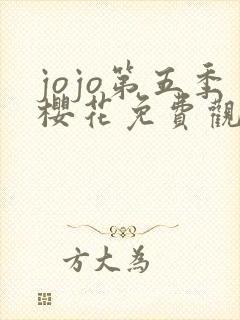 jojo第五季
櫻花免費觀
方大為